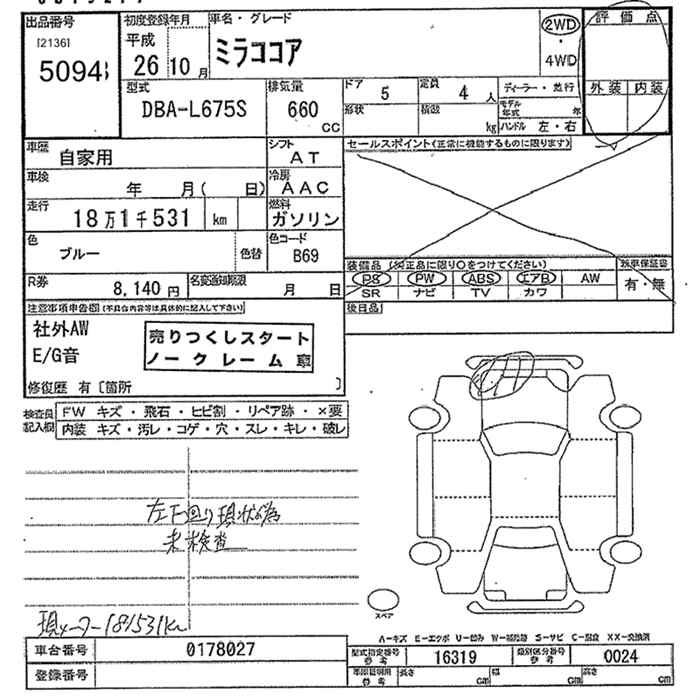 出品番号
[2136]
5094
初度登録年月
平成
26 10月
車名・グレード
ミラココア
2WD
・
4WD
評価点
外装 内装
型式
DBA-L675S
排気量
660
CC
ドア 5
定員 4 人
形状
積載 kg
ディーラー・並行
モデル年式 年
ハンドル 左・右
車歴
自家用
シフト
AT
セールスポイント(正常に機能するものに限ります)
車検
年 月( 日)
冷房
AAC
走行
18万1千531 km
燃料
ガソリン
色
ブルー
色替
色コード
B69
装備品 (※正品に限り○をつけてください)
PS PW ABS エアB AW
SR ナビ TV カワ
新車保証書
有・無
R券
8,140 円
名変通知期限
月 日
後日品
注意事項申告欄(不具合内容等は具体的に記入して下さい)
社外AW
E/G音
売りつくしスタート
ノークレーム車
修復歴 有〔箇所 〕
検査員
記入欄
FW キズ・飛石・ヒビ割・リペア跡・×要
内装 キズ・汚レ・コゲ・穴・スレ・キレ・破レ
左下回り現状為
未検査
現メーター181531Km
スペア
A-キズ E-エクボ U-凹み W-補修跡 S-サビ C-腐食 XX-交換済
車台番号
0178027
登録番号
型式指定番号
参考
16319
類別区分番号
参考
0024
車庫証明用
参考
長さ cm
幅 cm
高さ cm